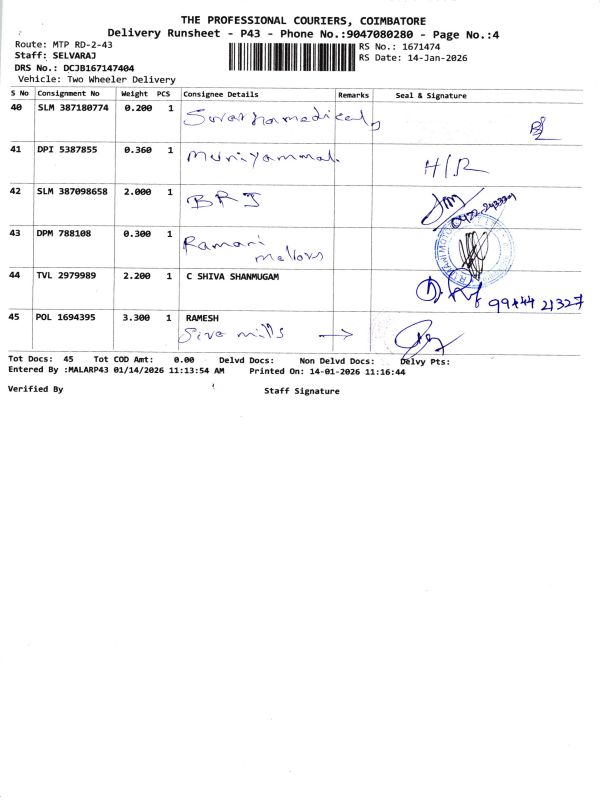 THE PROFESSIONAL COURIERS, COIMBATORE
Delivery Runsheet - P43 - Phone No.:9047080280 - Page No.:4
Route: MTP RD-2-43
RS No.: 1671474
Staff: SELVARAJ
RS Date: 14-Jan-2026
DRS No.: DCJB167147404
Vehicle: Two Wheeler Delivery
S No Consignment No Weight PCS Consignee Details Remarks Seal & Signature
40 SLM 387180774 0.200 1
41 DPI 5387855 0.360 1 Muniyammal. H/R
42 SLM 387098658 2.000 1 BRJ
43 DPM 788108 0.300 1 Ramani
44 TVL 2979989 2.200 1 C SHIVA SHANMUGAM
99444 21327
45 POL 1694395 3.300 1 RAMESH
Siva mills →
Tot Docs: 45 Tot COD Amt: 0.00 Delvd Docs: Non Delvd Docs: Delvy Pts:
Entered By :MALARP43 01/14/2026 11:13:54 AM Printed On: 14-01-2026 11:16:44
Verified By Staff Signature